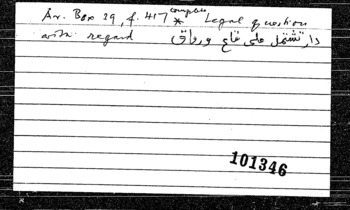 Ar. Box 29, f. 417 complete * Legal question
with regard دار تشتمل على قاع ورواق
101346